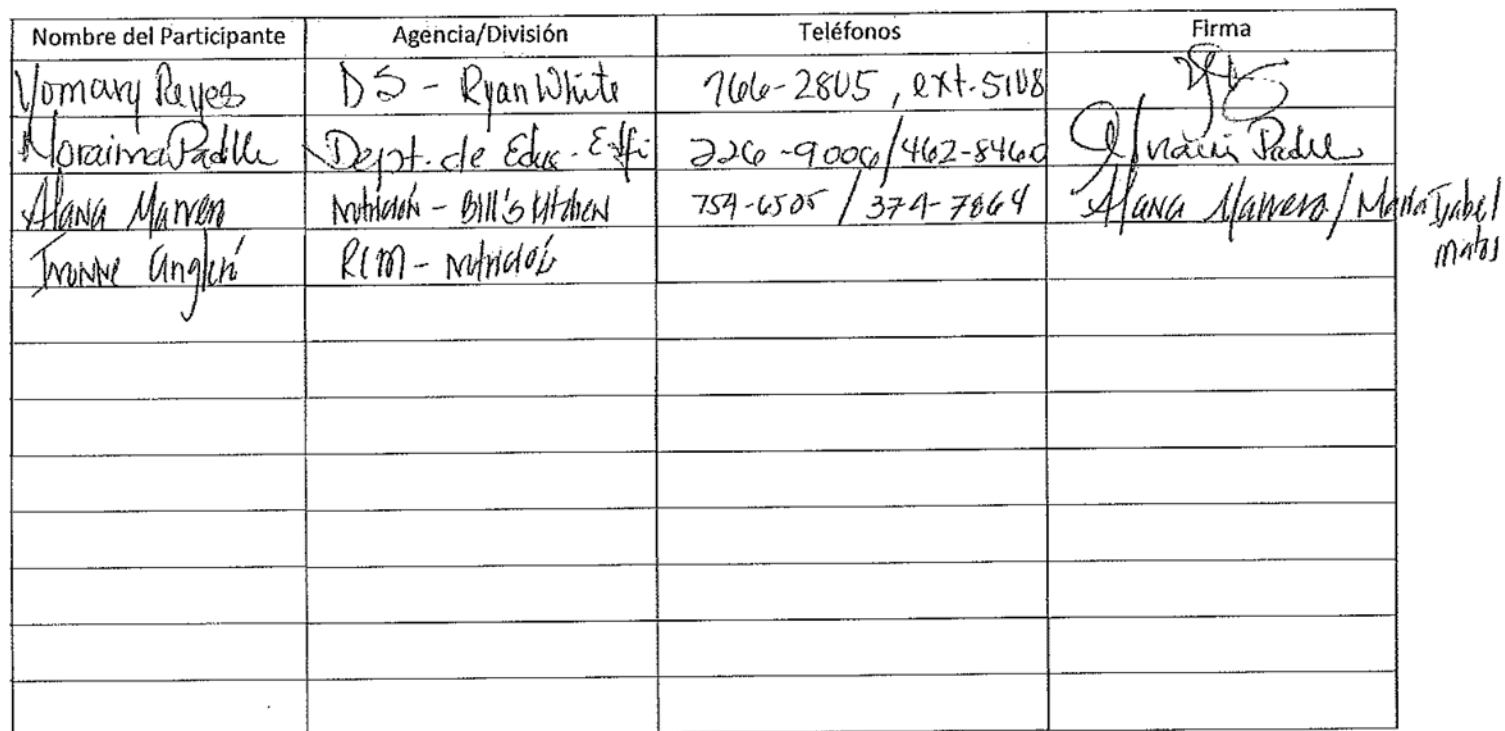 Nombre del Participante Agencia/División Teléfonos Firma
Yomary Reyes DS - Ryan White 766-2805, ext. 5108
Moraima Padilla Dept. de Educ. - 226-9006/462-8460 Padilla
Alana Marrero Nutrición - Bill's Kitchen 754-6505 / 374-7864 Alana Marrero / María Isabel
Matos
Ivonne RCM - Nutrición